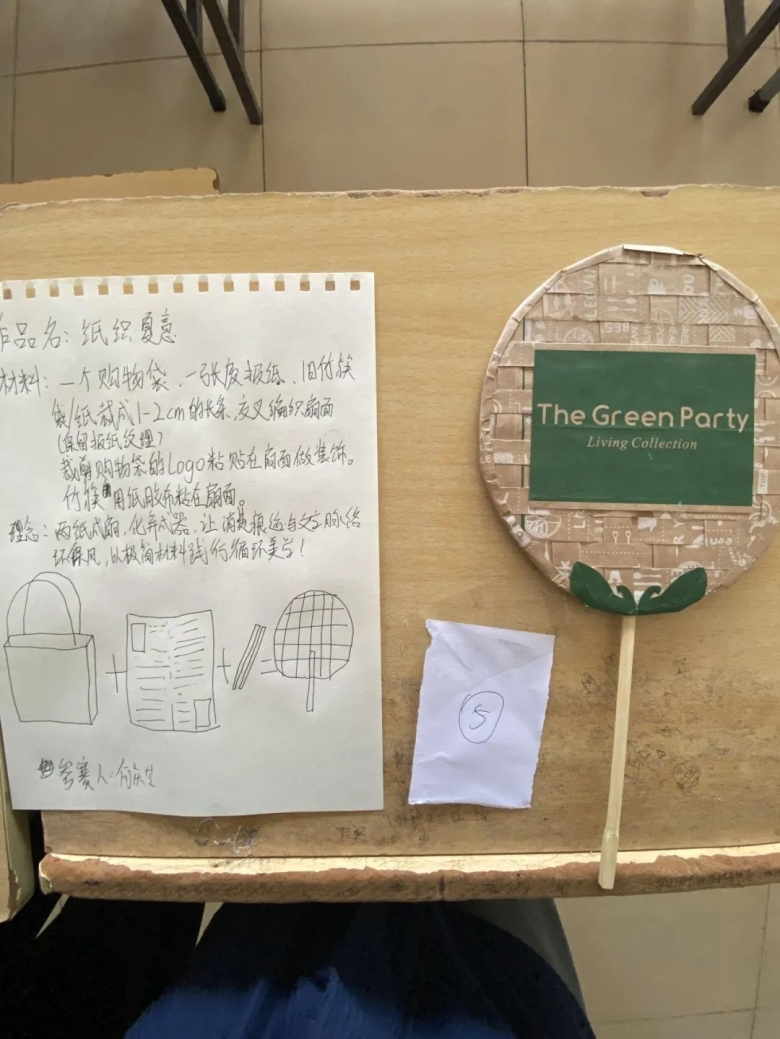 作品名：纸织夏意
材料：一个购物袋、一张废报纸、旧竹筷
袋/纸裁成1-2cm的长条，交叉编织扇面
(保留报纸纹理)
裁剪购物袋的Logo粘贴在扇面做装饰。
竹筷用纸胶布粘在扇面。
理念：两纸成扇，化弃成器，让消费痕迹与文字脉络
环保风，以极简材料践行循环美学！
参赛人：何
5
The Green Party
Living Collection